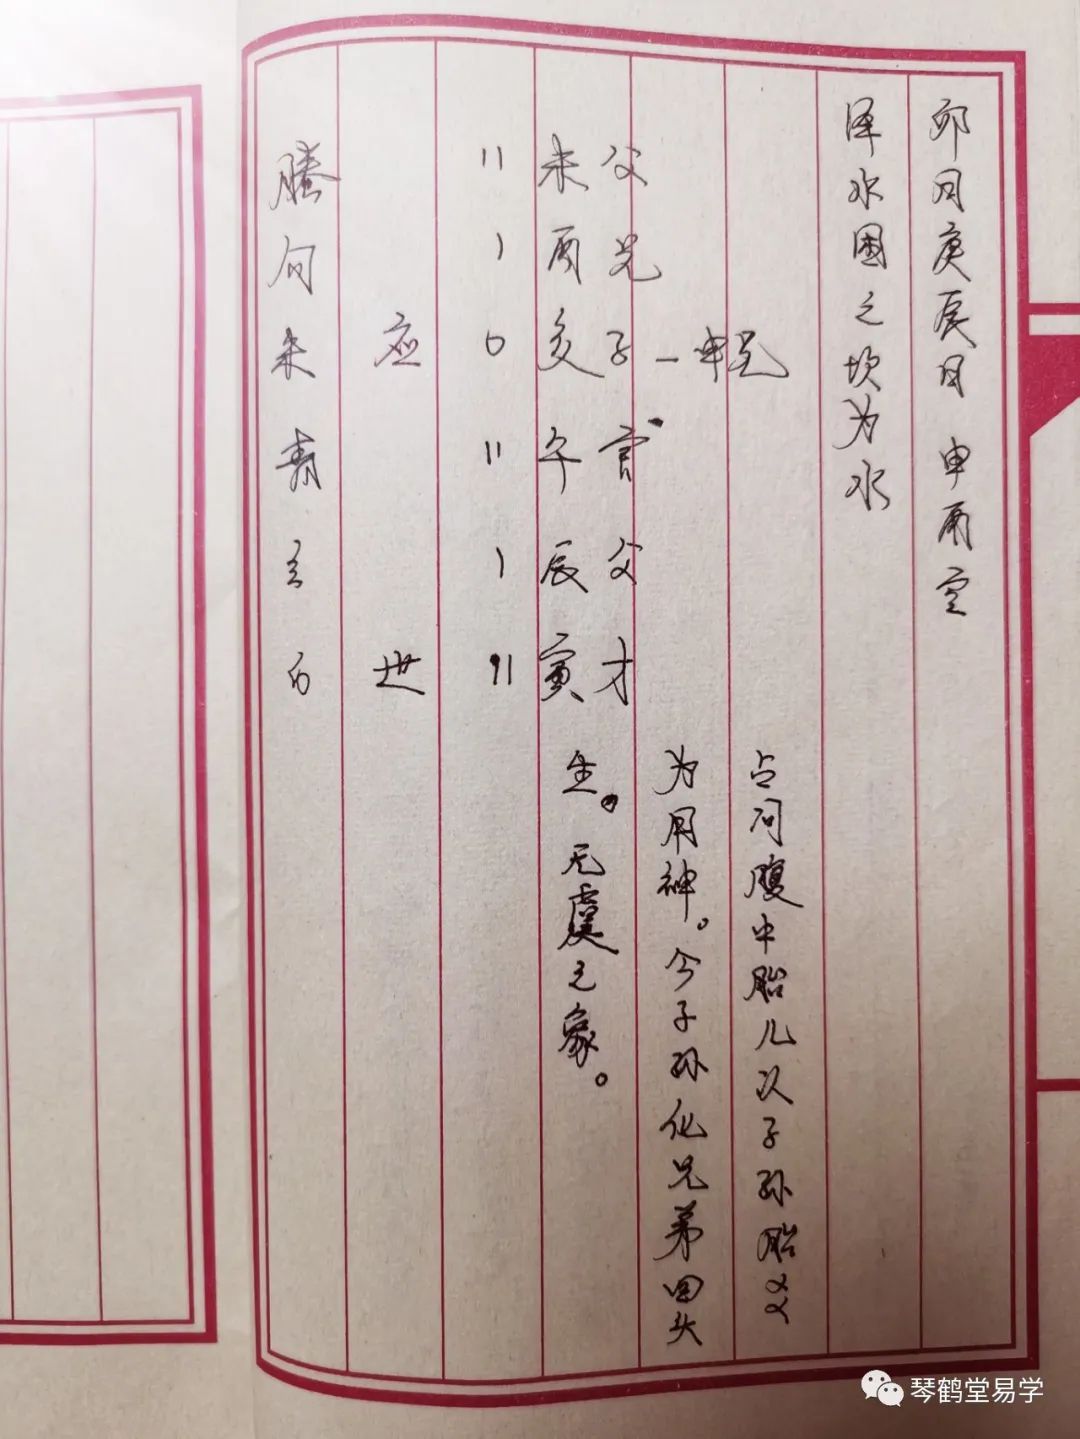 卯月庚辰日 申酉空
泽水困之坎为水
父未 〃 腾
兄酉 丶 勾
申兄 — 子亥 0 应 朱
官午 〃 青
父辰 丶 玄
才寅 〃 世 白
占问腹中胎儿以子孙胎爻
为用神。今子孙化兄弟回头
生。无虞之象。
琴鹤堂易学